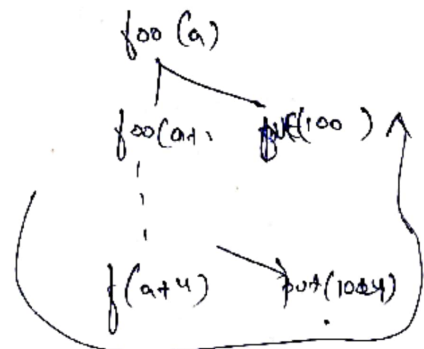 foo (a)
foo(a+1 put(100 )
f(a+4) put(1004)